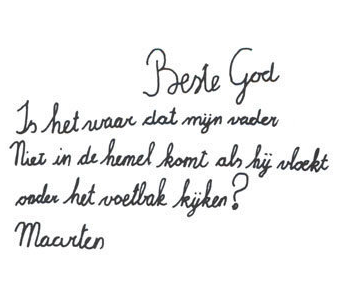 Beste God
Is het waar dat mijn vader
Niet in de hemel komt als hij vloekt
onder het voetbak kijken?
Maarten